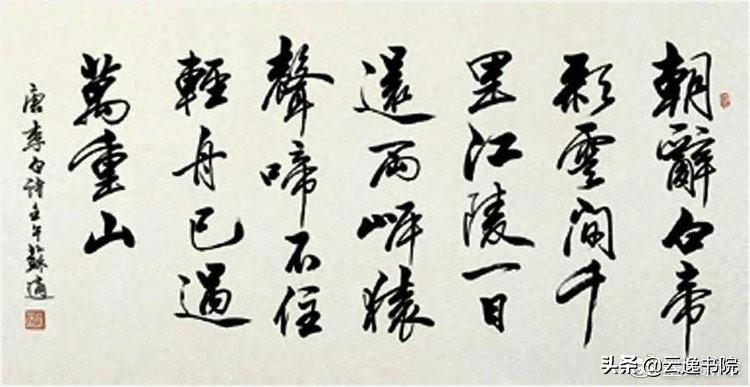 朝辭白帝
彩雲間千
里江陵一日
還兩岸猿
聲啼不住
輕舟已過
萬重山
唐李白詩壬午蘇適
头条@云逸书院